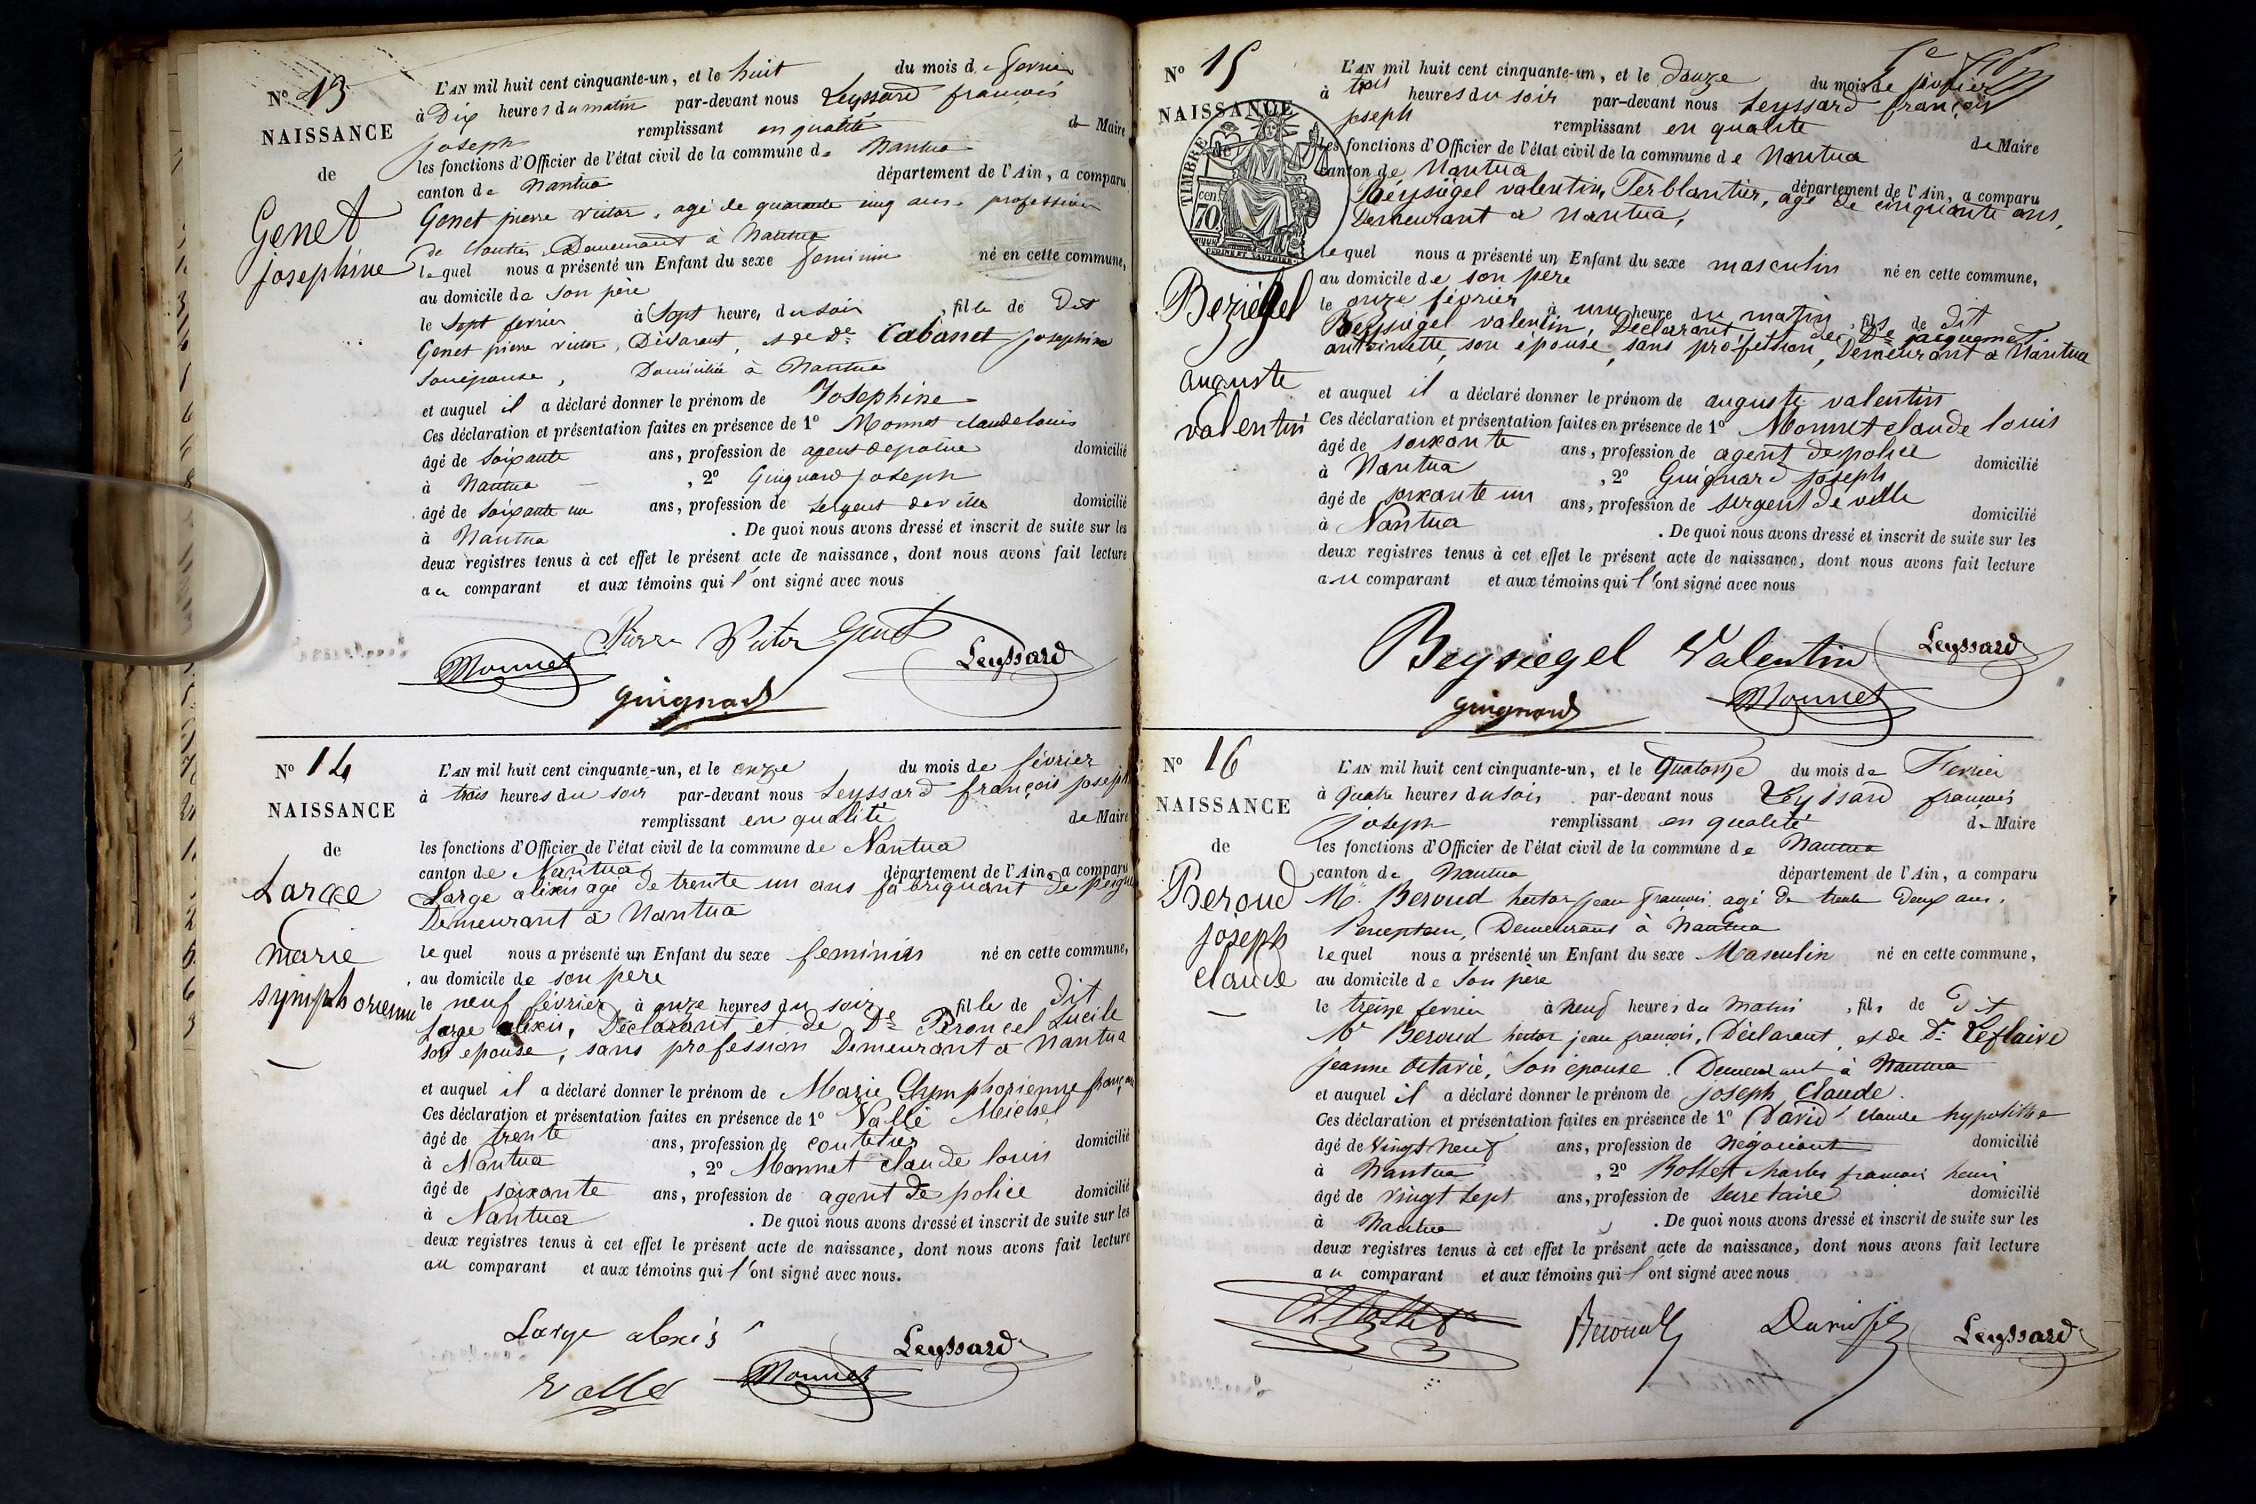 Nº 13
NAISSANCE
de
Genet
josephine
L'AN mil huit cent cinquante-un, et le huit du mois de fevrier
à Dix heures du matin par-devant nous Leyssard françois
joseph remplissant en qualité de Maire
les fonctions d'Officier de l'état civil de la commune de Nantua
canton de Nantua département de l'Ain, a comparu
Genet pierre victor, agé de quarante cinq ans, profession
de Demeurant à Nantua
lequel nous a présenté un Enfant du sexe feminin né en cette commune,
au domicile de son père
le Sept fevrier à Sept heures du soir, fille de Dit
Genet pierre victor, Déclarant, et de De Cabanet josephine
son épouse, Domiciliée à Nantua
et auquel il a déclaré donner le prénom de Josephine
Ces déclaration et présentation faites en présence de 1º Monnet claude louis
âgé de soixante ans, profession de agent de police domicilié
à Nantua, 2º Guignard joseph
âgé de soixante un ans, profession de sergent de ville domicilié
à Nantua. De quoi nous avons dressé et inscrit de suite sur les
deux registres tenus à cet effet le présent acte de naissance, dont nous avons fait lecture
au comparant et aux témoins qui l'ont signé avec nous
Pierre Victor Genet
Monnet Leyssard
guignard
Nº 14
NAISSANCE
de
Large
marie
symphorienne
L'AN mil huit cent cinquante-un, et le onze du mois de février
à trois heures du soir par-devant nous Leyssard françois joseph
remplissant en qualité de Maire
les fonctions d'Officier de l'état civil de la commune de Nantua
canton de Nantua département de l'Ain, a comparu
Large alexis agé de trente un ans fabriquant de peignes
Demeurant à Nantua
lequel nous a présenté un Enfant du sexe feminin né en cette commune,
au domicile de son père
le neuf février à onze heures du soir fille de dit
Large alexis, Déclarant et de De Broncel Lucile
son epouse, sans profession Demeurant à Nantua
et auquel il a déclaré donner le prénom de Marie Symphorienne
Ces déclaration et présentation faites en présence de 1º Vallé Michel
âgé de trente ans, profession de coutelier domicilié
à Nantua, 2º Monnet claude louis
âgé de soixante ans, profession de agent de police domicilié
à Nantua. De quoi nous avons dressé et inscrit de suite sur les
deux registres tenus à cet effet le présent acte de naissance, dont nous avons fait lecture
au comparant et aux témoins qui l'ont signé avec nous.
Large alexis
Leyssard
Vallé Monnet
Nº 15
NAISSANCE
de
TIMBRE
70
Beziégel
auguste
valentin
L'AN mil huit cent cinquante-un, et le douze du mois de fevrier
à trois heures du soir par-devant nous Leyssard françois
joseph remplissant en qualité de Maire
les fonctions d'Officier de l'état civil de la commune de Nantua
canton de Nantua département de l'Ain, a comparu
Béysiégel valentin, Ferblantier, agé de cinquante ans,
Demeurant à Nantua,
lequel nous a présenté un Enfant du sexe masculin né en cette commune,
au domicile de son père
le onze février à une heure du matin, fils de dit
Beysiégel valentin, Déclarant, et de De jacquemet
antoinette, son épouse, sans profession, Demeurant à Nantua
et auquel il a déclaré donner le prénom de auguste valentin
Ces déclaration et présentation faites en présence de 1º Monnet claude louis
âgé de soixante ans, profession de agent de police domicilié
à Nantua, 2º Guignard joseph
âgé de soixante un ans, profession de sergent de ville domicilié
à Nantua. De quoi nous avons dressé et inscrit de suite sur les
deux registres tenus à cet effet le présent acte de naissance, dont nous avons fait lecture
au comparant et aux témoins qui l'ont signé avec nous
Beysiegel Valentin Leyssard
guignard Monnet
Nº 16
NAISSANCE
de
Beroud
joseph
claude
L'AN mil huit cent cinquante-un, et le Quatorze du mois de Fevrier
à Quatre heures du soir par-devant nous Leyssard françois
joseph remplissant en qualité de Maire
les fonctions d'Officier de l'état civil de la commune de Nantua
canton de Nantua département de l'Ain, a comparu
Mr Beroud hector jean françois, agé de trente deux ans,
Percepteur, Demeurant à Nantua
lequel nous a présenté un Enfant du sexe Masculin né en cette commune,
au domicile de son père
le treize fevrier à neuf heures du matin, fils de Dit
Mr Beroud hector jean françois, Déclarant, et de De Leflaive
jeanne octavie, son épouse. Demeurant à Nantua
et auquel il a déclaré donner le prénom de joseph Claude.
Ces déclaration et présentation faites en présence de 1º David claude hypolithe
âgé de Vingt neuf ans, profession de négociant domicilié
à Nantua, 2º Rosset charles françois henri
âgé de Vingt sept ans, profession de secretaire domicilié
à Nantua. De quoi nous avons dressé et inscrit de suite sur les
deux registres tenus à cet effet le présent acte de naissance, dont nous avons fait lecture
au comparant et aux témoins qui l'ont signé avec nous
Beroud David Leyssard